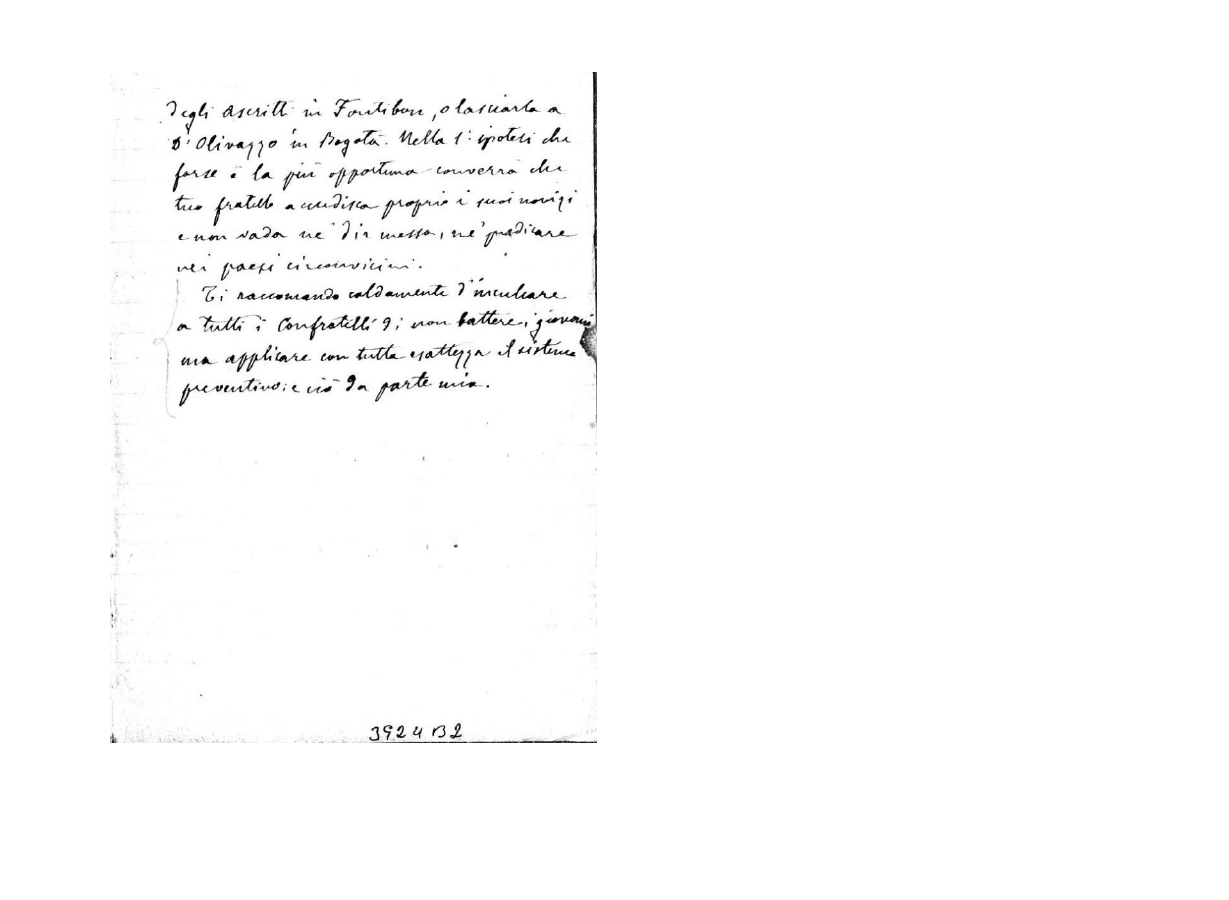 degli Ascritti in Fontibon, o lasciarla a
D. Olivazzo in Bogotà. Nella 1ª ipotesi che
forse è la più opportuna converrà che
tuo fratello accudisca proprio i suoi novizi
e non vada nè dir messa, nè predicare
nei paesi circonvicini.
Ti raccomando caldamente d'inculcare
a tutti i Confratelli di non battere i giovani
ma applicare con tutta esattezza il sistema
preventivo: e ciò da parte mia.
3924 B2